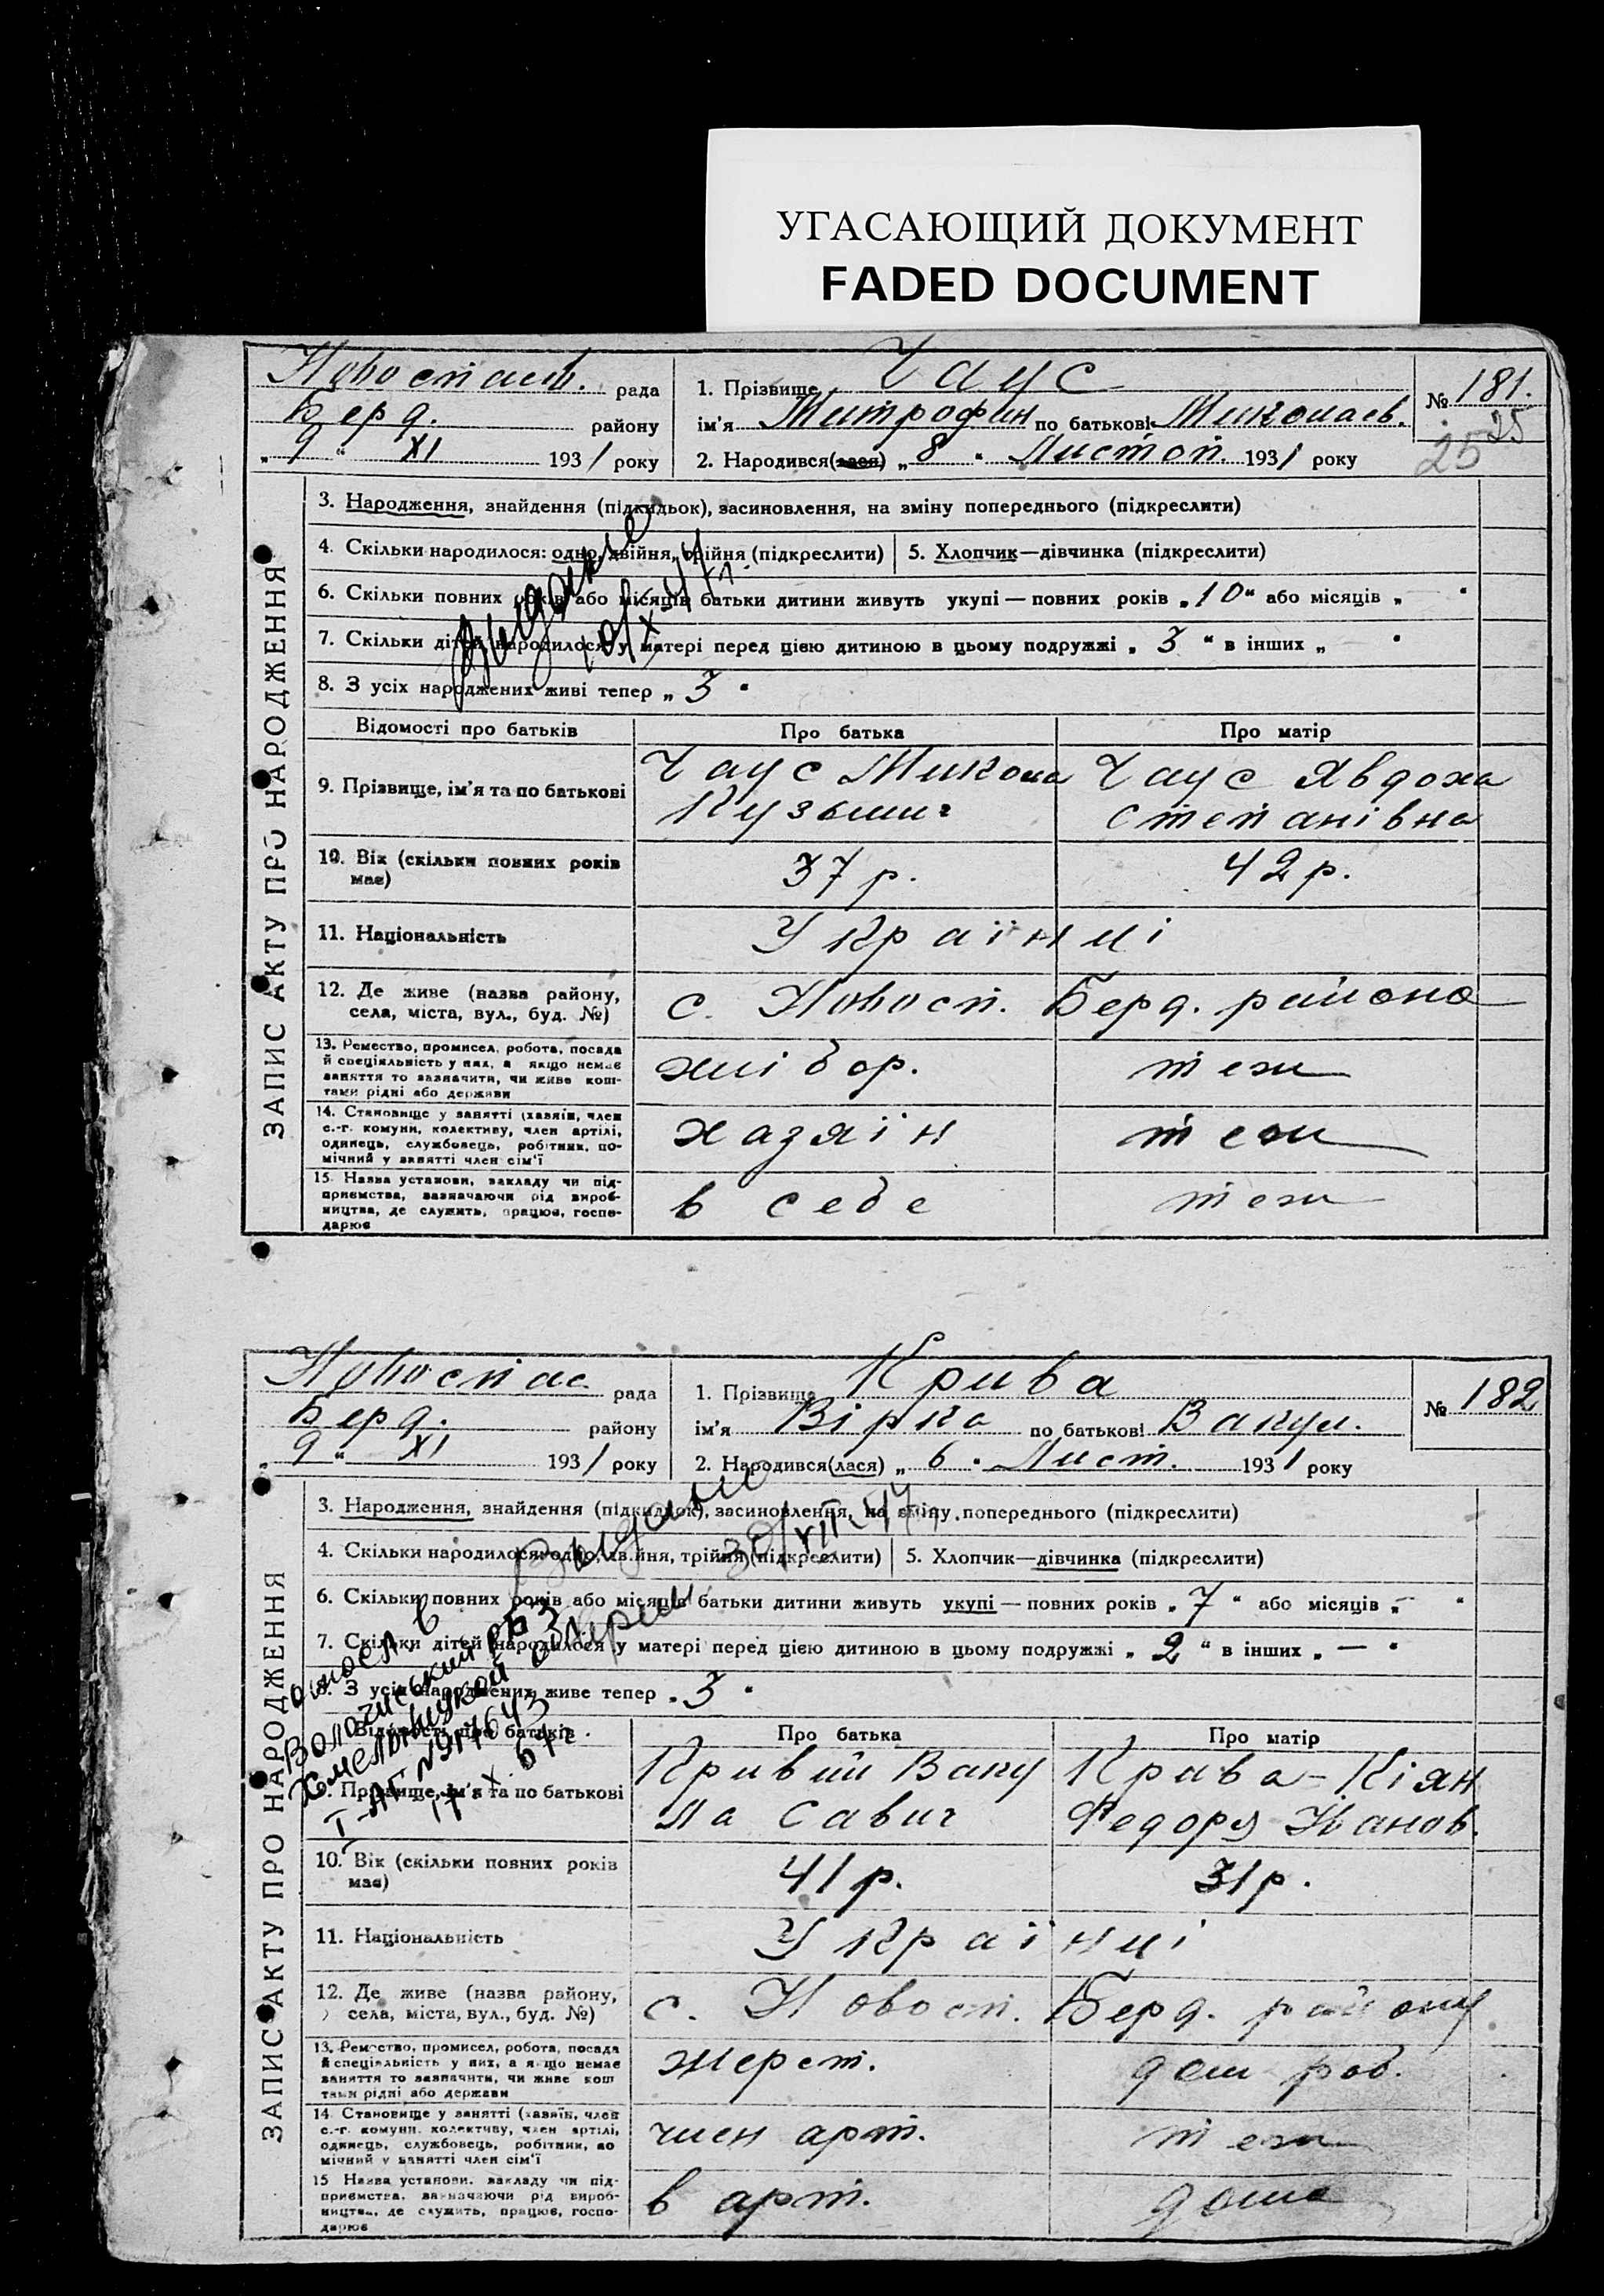 УГАСАЮЩИЙ ДОКУМЕНТ
FADED DOCUMENT
ЗАПИС АКТУ ПРО НАРОДЖЕННЯ
Новоспасів. рада
Берд. району
„ 9 “ XI 1931 року
1. Прізвище Чаус
ім'я Митрофан по батькові Миколаєв.
2. Народився(лася) „ 8 “ Листоп. 1931 року
№ 181.
25
25
3. Народження, знайдення (підкидьок), засиновлення, на зміну попереднього (підкреслити)
4. Скільки народилося: одно, двійня, трійня (підкреслити) 5. Хлопчик—дівчинка (підкреслити)
6. Скільки повних років або місяців батьки дитини живуть укупі — повних років „ 10 “ або місяців „ “
7. Скільки дітей народилося у матері перед цією дитиною в цьому подружжі „ 3 “ в інших „ “
8. З усіх народжених живі тепер „ 3 “
Відомості про батьків Про батька Про матір
9. Прізвище, ім'я та по батькові
Чаус Микола
Кузьмич
Чаус Явдоха
Степанівна
10. Вік (скільки повних років має) 37 р. 42 р.
11. Національність Українці
12. Де живе (назва району, села, міста, вул., буд. №) с. Новосп. Берд. района
13. Ремество, промисел, робота, посада
й спеціяльність у них, а якщо немає
заняття то зазначити, чи живе кош-
тами рідні або держави
хлібор. теж
14. Становище у занятті (хазяїн, член
с.-г. комуни, колективу, член артілі,
одинець, службовець, робітник, по-
мічний у занятті член сім'ї
хазяїн теж
15. Назва установи, закладу чи під-
приємства, зазначаючи рід вироб-
ництва, де служить, працює, госпо-
дарює
в себе теж
ЗАПИС АКТУ ПРО НАРОДЖЕННЯ
Новоспас. рада
Берд. району
„ 9 “ XI 1931 року
1. Прізвище Крива
ім'я Вірка по батькові Вакул.
2. Народився(лася) „ 6 “ Лист. 1931 року
№ 182
3. Народження, знайдення (підкидьок), засиновлення, на зміну попереднього (підкреслити)
4. Скільки народилося: одно, двійня, трійня (підкреслити) 5. Хлопчик—дівчинка (підкреслити)
6. Скільки повних років або місяців батьки дитини живуть укупі — повних років „ 7 “ або місяців „ – “
7. Скільки дітей народилося у матері перед цією дитиною в цьому подружжі „ 2 “ в інших „ — “
8. З усіх народжених живе тепер „ 3 “
Відомості про батьків Про батька Про матір
9. Прізвище, ім'я та по батькові
КривийВаку
ла Савич
Крива-Кіян
Федора Іванов.
10. Вік (скільки повних років має) 41 р. 31 р.
11. Національність Українці
12. Де живе (назва району, села, міста, вул., буд. №) с. Новосп. Берд. району
13. Ремество, промисел, робота, посада
й спеціяльність у них, а якщо немає
заняття то зазначити, чи живе кош
тами рідні або держави
дом роб.
14. Становище у занятті (хазяїн, член
с.-г. комуни, колективу, член артілі,
одинець, службовець, робітник, по
мічний у занятті член сім'ї
член арт. теж
15 Назва установи, закладу чи під-
приємства, зазначаючи рід вироб-
ництва, де служить, працює, госпо-
дарює
в арт. дома